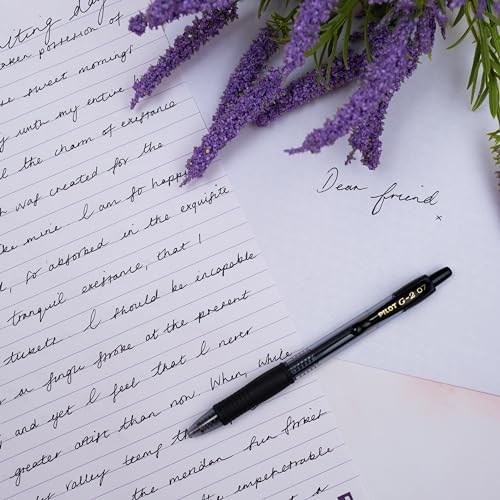 day
possession of
sweet mornings
with my entire
the charm of existance
was created for the
mine I am so happ
so absorbed in the exquisite
tranquil existance, that I
I should be incapable
a single stroke at the present
and yet I feel that I never
greater artist than now. When, while
valley teems
the meridan sun
the impenetrable
a
Dear friend
x
PILOT G-2 07